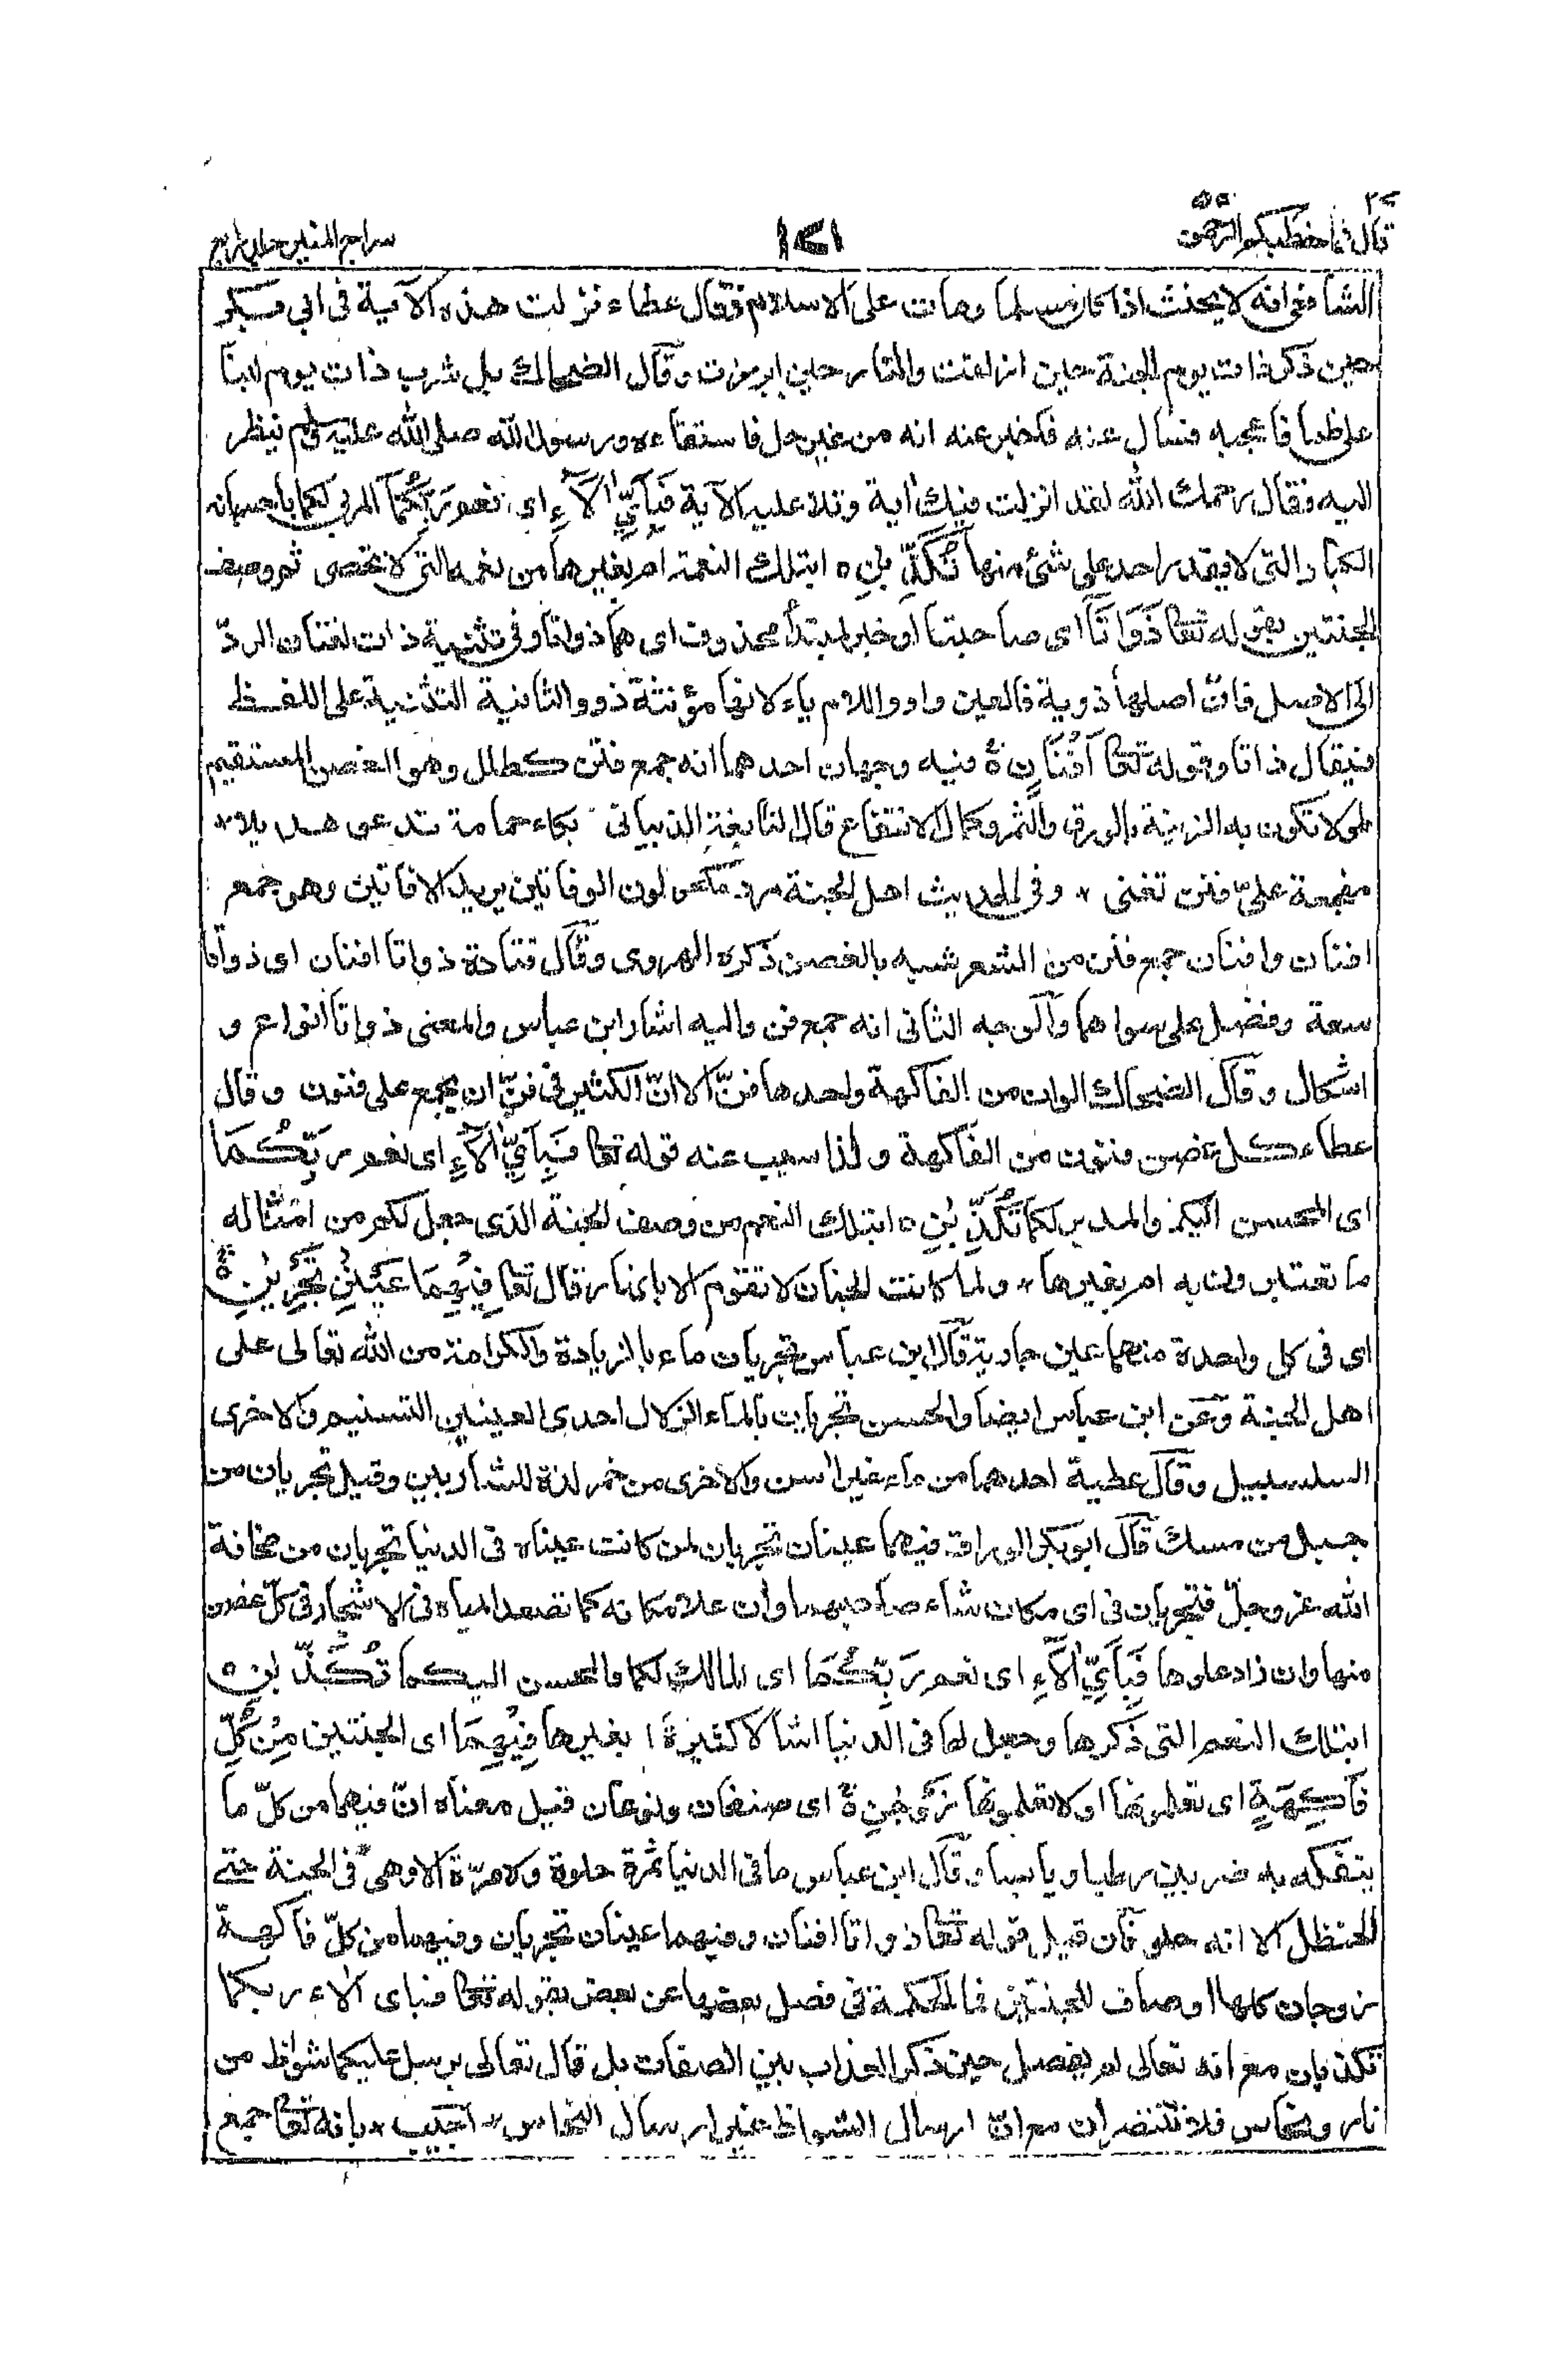 قال فما خطبكم الرحمن ١٤١ سراج المنير جلد رابع
الشافعى انه لا يحنث اذا كان مسلما ومات على الاسلام فقال عطاء نزلت هذه الآية فى ابى بكر
حين ذكر ذات يوم الجنة حين ازلفت والنار حين ابرزت وقال الضحاك بل شرب ذات يوم لبنا
على ظما فاعجبه فسال عنه فاخبر عنه انه من غير حل فاستقاءه ورسول الله صلى الله عليه وسلم ينظر
اليه فقال رحمك الله لقد انزلت فيك آية وتلا عليه الآية فَبِاَيِّ اٰلَآءِ اى نعم رَبِّكُمَا المربى لكما باحسانه
الكبار التى لا يقدر احد على شئ منها تُكَذِّبٰنِ ه ابتلك النعمة ام بغيرها من نعمه التى لا تحصى ثم وصف
الجنتين بقوله تعا ذَوَاتَآ اى صاحبتا او خبر لمبتدأ محذوف اى هما ذواتا وفى تثنية ذات لغتان الردّ
الى الاصل فان اصلها ذوية فالعين واو واللام ياء لانها مؤنثة ذوو والثانية التثنية على اللفظ
فيقال ذاتا وقوله تعا اَفْنَانٍ ه فيه وجهان احدهما انه جمع فنن كطلل وهو الغصن المستقيم
طولا تكون به الزينة بالورق والثمر وكمال الانتفاع قال النابغة الذبيانى بكاء حمامة تدعو هديلا *
مفجعة على فنن تغنى * وفى الحديث اهل الجنة مرد مكحلون الوفانين يريد الافانين وهو جمع
افنان وافنان جمع فنن من الشعر شبه بالغصن ذكره الهروى وقال قتادة ذواتا افنان اى ذواتا
سعة وفضل على سواهما والوجه الثانى انه جمع فن واليه اشار ابن عباس والمعنى ذواتا انواع و
اشكال وقال الضحاك الوان من الفاكهة واحدها فنّ الا انّ الكثير فى فنّ ان يجمع على فنون وقال
عطاء كل غصن فنون من الفاكهة ولذا سبب عنه قوله تعا فَبِاَيِّ اٰلَآءِ اى نعم رَبِّكُمَا
اى المحسن اليكم والمدبر لكما تُكَذِّبٰنِ ه ابتلك النعم من وصف الجنة الذى جعل لكم من امثاله
ما تعتبرون به ام بغيرها * ولما كانت الجنان لا تقوم الا بالانهار قال تعا فِيْهِمَا عَيْنٰنِ تَجْرِيٰنِ ه
اى فى كل واحدة منهما عين جارية قال ابن عباس تجريان ماء بالزيادة والكرامة من الله تعالى على
اهل الجنة وعن ابن عباس ايضا والحسن تجريان بالماء الزلال احدى العينين التسنيم والاخرى
السلسبيل وقال عطية احدهما من ماء غير اسن والاخرى من خمر لذة للشاربين وقيل تجريان من
جبل من مسك قال ابو بكر الوراق فيهما عينان تجريان لمن كانت عيناه فى الدنيا تجريان من مخافة
الله عز وجلّ فتجريان فى اى مكان شاء صاحبهما وان علا مكانه كما تصعد المياه فى الاشجار فى كلّ غصن
منها وان زاد علوها فَبِاَيِّ اٰلَآءِ اى نعم رَبِّكُمَا اى المالك لكما والمحسن اليكما تُكَذِّبٰنِ ه
ابتلك النعم التى ذكرها وجعل لها فى الدنيا امثالا كثيرة ا بغيرها فِيْهِمَا اى الجنتين مِنْ كُلِّ
فَاكِهَةٍ اى تعلمونها او لا تعلمونها زَوْجٰنِ ه اى صنفان ونوعان قيل معناه انّ فيهما من كلّ ما
يتفكه به ضربين رطبا ويابسا وقال ابن عباس ما فى الدنيا ثمرة حلوة ولا مرّة الا وهى فى الجنة حتى
الحنظل الا انه حلو فان قيل قوله تعا ذواتا افنان وفيهما عينان تجريان وفيهما من كلّ فاكهة
زوجان كلها اوصاف للجنتين فما الحكمة فى فصل بعضها عن بعض بقوله تعا فباى الاء ربكما
تكذبان مع انه تعالى لم يفصل حين ذكر العذاب بين الصفات بل قال تعالى يرسل عليكما شواظ من
نار ونحاس فلا تنتصران مع انّ ارسال الشواظ غير ارسال النحاس * اجيب * بانه تعا جمع